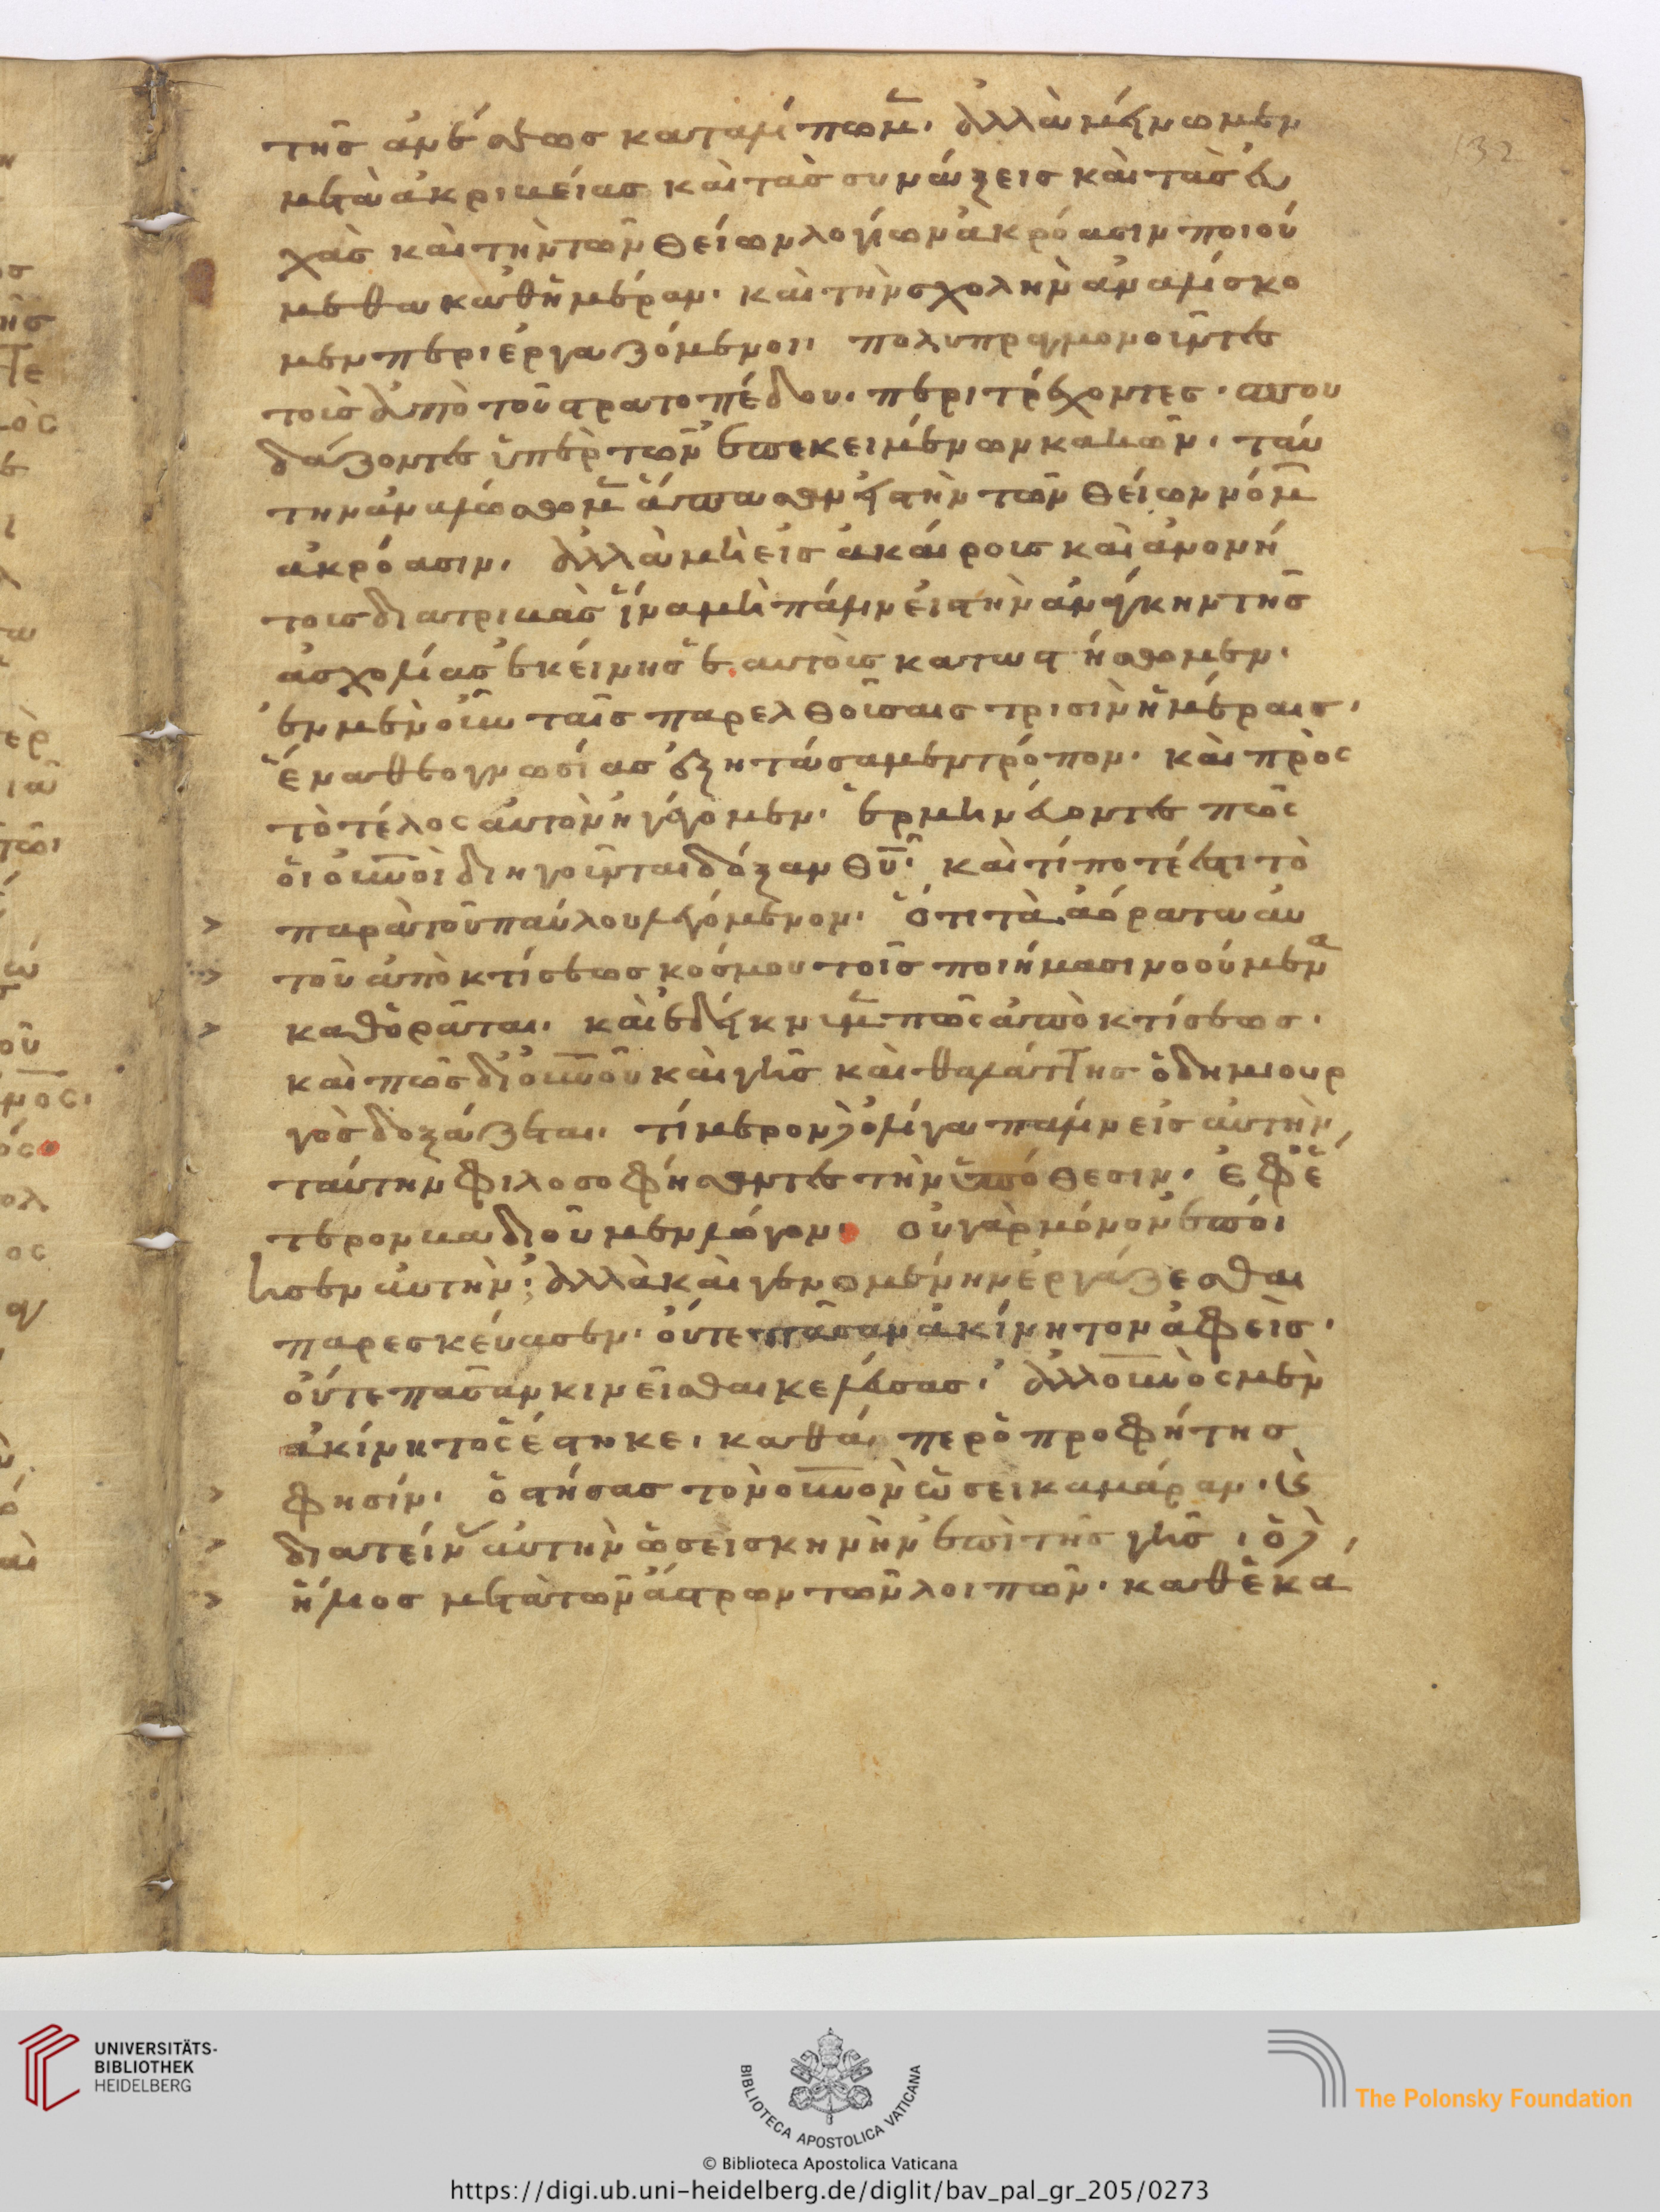 τῆς ἀνέσεως καταλίπωμ̅· ἀλλὰ μείνωμεν
μετὰ ἀκριβείας καὶ τὰς συνάξεις καὶ τὰς εὐ
χὰς καὶ τὴν τῶν θείων λογίων ἀκρόασιν ποιού
μεθα καθἡμέραν· καὶ τὴν σχολὴν ἀναλίσκο
μεν περιεργαζόμενοι· πολυπραγμονοῦντες
τοὺς ἀπὸ τοῦ στρατοπέδου· περιτρέχοντες· σπου
δάζοντες ὑπὲρ τῶν ἐπικειμένων κακῶν· ταύ
την ἀναλώσομ̅ ἅπασαν εἰς τὴν τῶν θείων νόμ̅
ἀκρόασιν· ἀλλὰ μὴ εἰς ἀκαίροις καὶ ἀνονή
τοις διατριβὰς ἵνα μὴ πάλιν εἰς τὴν ἀνάγκην τῆς
ἀσχολίας ἐκείνης ἑαυτοὺς καταστήσομεν·
ἐν μὲν οὖν ταῖς παρελθούσαις τρισὶν ἡμέραις·
ἕνα θεογνωσίας ἐξητάσαμεν τρόπον· καὶ πρὸς
τὸ τέλος αὐτὸν ἠγάγομεν· ἑρμηνεύοντες πῶς
οἱ οὐ̅ν̅ο̅ὶ διηγοῦνται δόξαν θ̅υ̅· καὶ τί ποτέ ἐστι τὸ
> παρὰ τοῦ παύλου λεγόμενον· ὅτι τὰ ἀόρατα αὐ
> τοῦ ἀπὸ κτίσεως κόσμου τοῖς ποιήμασι νοούμενα
> καθορᾶται· καὶ ἐδείκνυμ̅ πῶς ἀπὸ κτίσεως·
καὶ πῶς δι οὐ̅ν̅ο̅ῦ καὶ γῆς καὶ θαλάττης ὁ δημιουρ
γὸς δοξάζεται· τήμερον δὲ ὀλίγα πάλιν εἰς αὐτὴν
ταύτην φιλοσοφήσαντες τὴν ὑπόθεσιν· ἐφ ἕ
τερον βαδιοῦμεν λόγον· οὐ γὰρ μόνον ἐποί
ησεν αὐτὴν; ἀλλὰ καὶ γενομένην ἐργάζεσθαι
παρεσκεύασεν· οὔτε πᾶσαν ἀκίνητον ἀφεὶς·
οὔτε πᾶσαν κινεῖσθαι κελεύσας· ἀλλ οὐ̅ν̅ὸς μὲν
ἀκίνητος ἕστηκε· καθάπερ ὁ προφήτης
> φησίν· ὁ στήσας τὸν οὐ̅ν̅ὸν ὡσεὶ καμάραν· ϗ
> διατείνας αὐτὴν ὡσεὶ σκηνὴν ἐπὶ τῆς γῆς· ὁ δὲ
> ἥλιος μετὰ τῶν ἄστρων τῶν λοιπῶν· καθ ἑκά
132
UNIVERSITÄTS-
BIBLIOTHEK
HEIDELBERG
BIBLIOTECA APOSTOLICA VATICANA
The Polonsky Foundation
© Biblioteca Apostolica Vaticana
https://digi.ub.uni-heidelberg.de/diglit/bav_pal_gr_205/0273